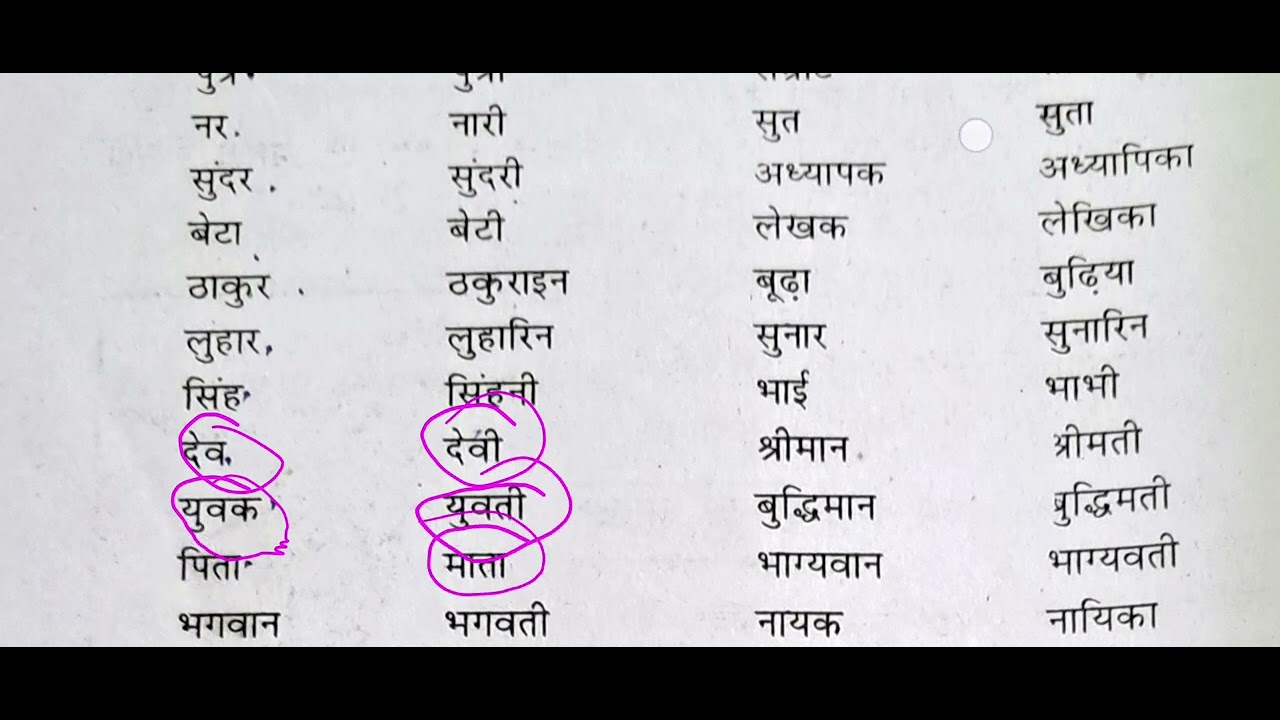 पुत्र पुत्री
नर नारी सुत सुता
सुंदर सुंदरी अध्यापक अध्यापिका
बेटा बेटी लेखक लेखिका
ठाकुर ठकुराइन बूढ़ा बुढ़िया
लुहार लुहारिन सुनार सुनारिन
सिंह सिंहनी भाई भाभी
देव देवी श्रीमान श्रीमती
युवक युवती बुद्धिमान बुद्धिमती
पिता माता भाग्यवान भाग्यवती
भगवान भगवती नायक नायिका